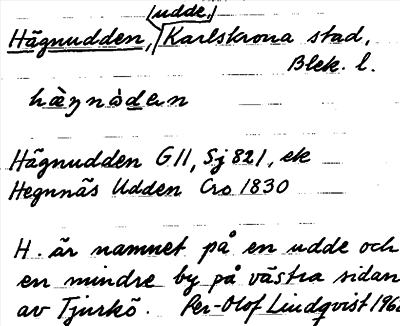 udde,
Hägnudden, Karlskrona stad,
Blek. l.
hägnùdən
Hägnudden G11, Sj 821, ek
Hegnnäs Udden Cro 1830
H. är namnet på en udde och
en mindre by på västra sidan
av Tjurkö. Per-Olof Lindqvist